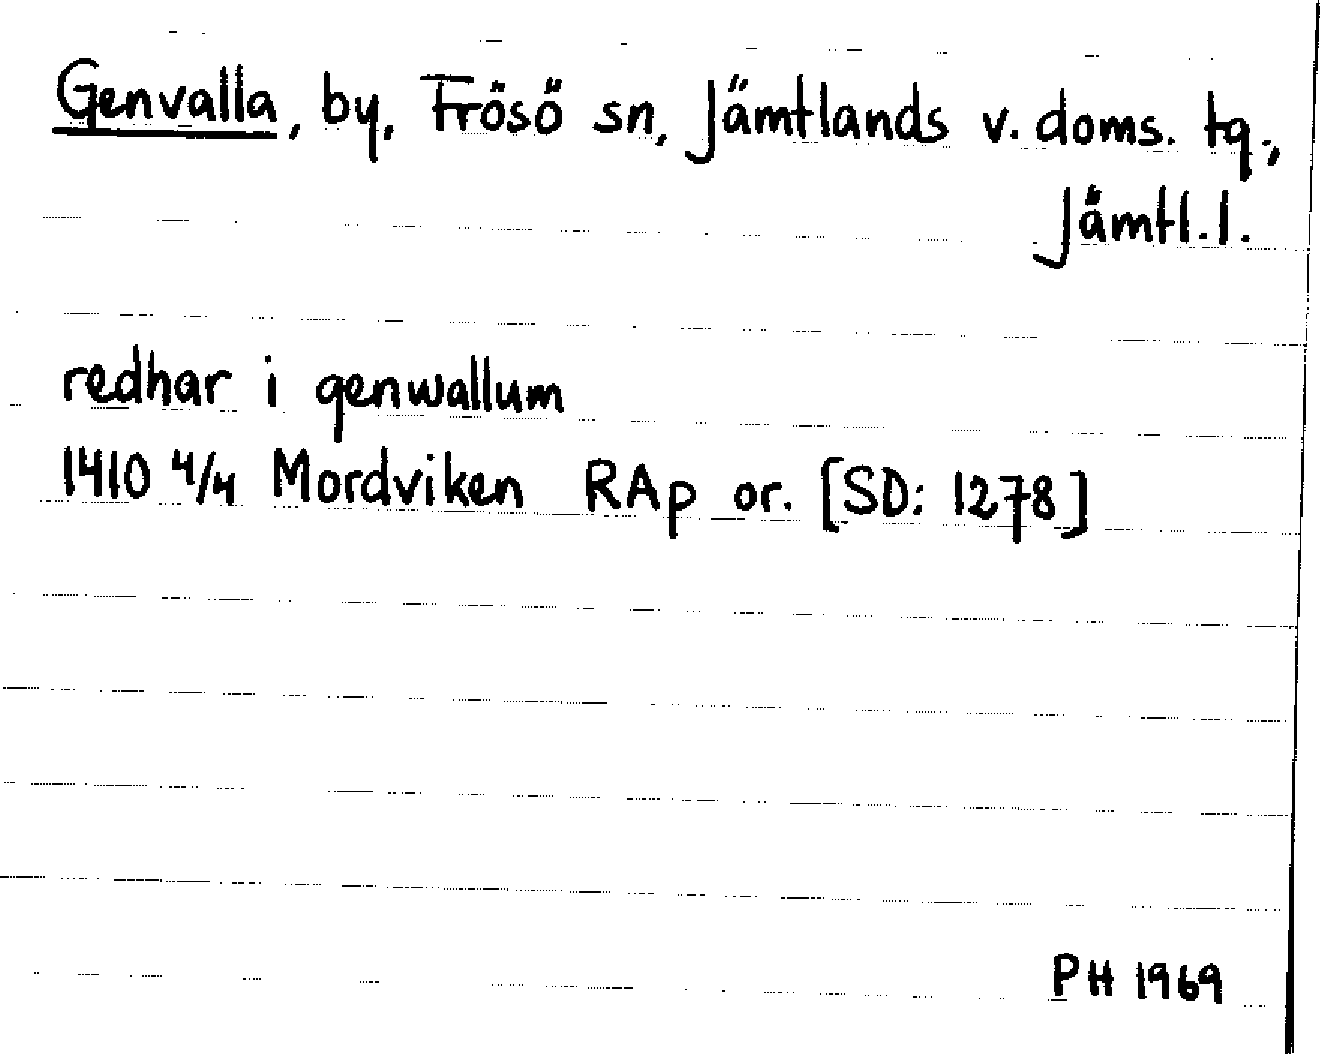 Genvalla, by, Frösö sn, Jämtlands v. doms. tg.,
Jämtl. l.
redhar i genwallum
1410 4/4 Mordviken RAp or. [SD: 1278]
PH 1969